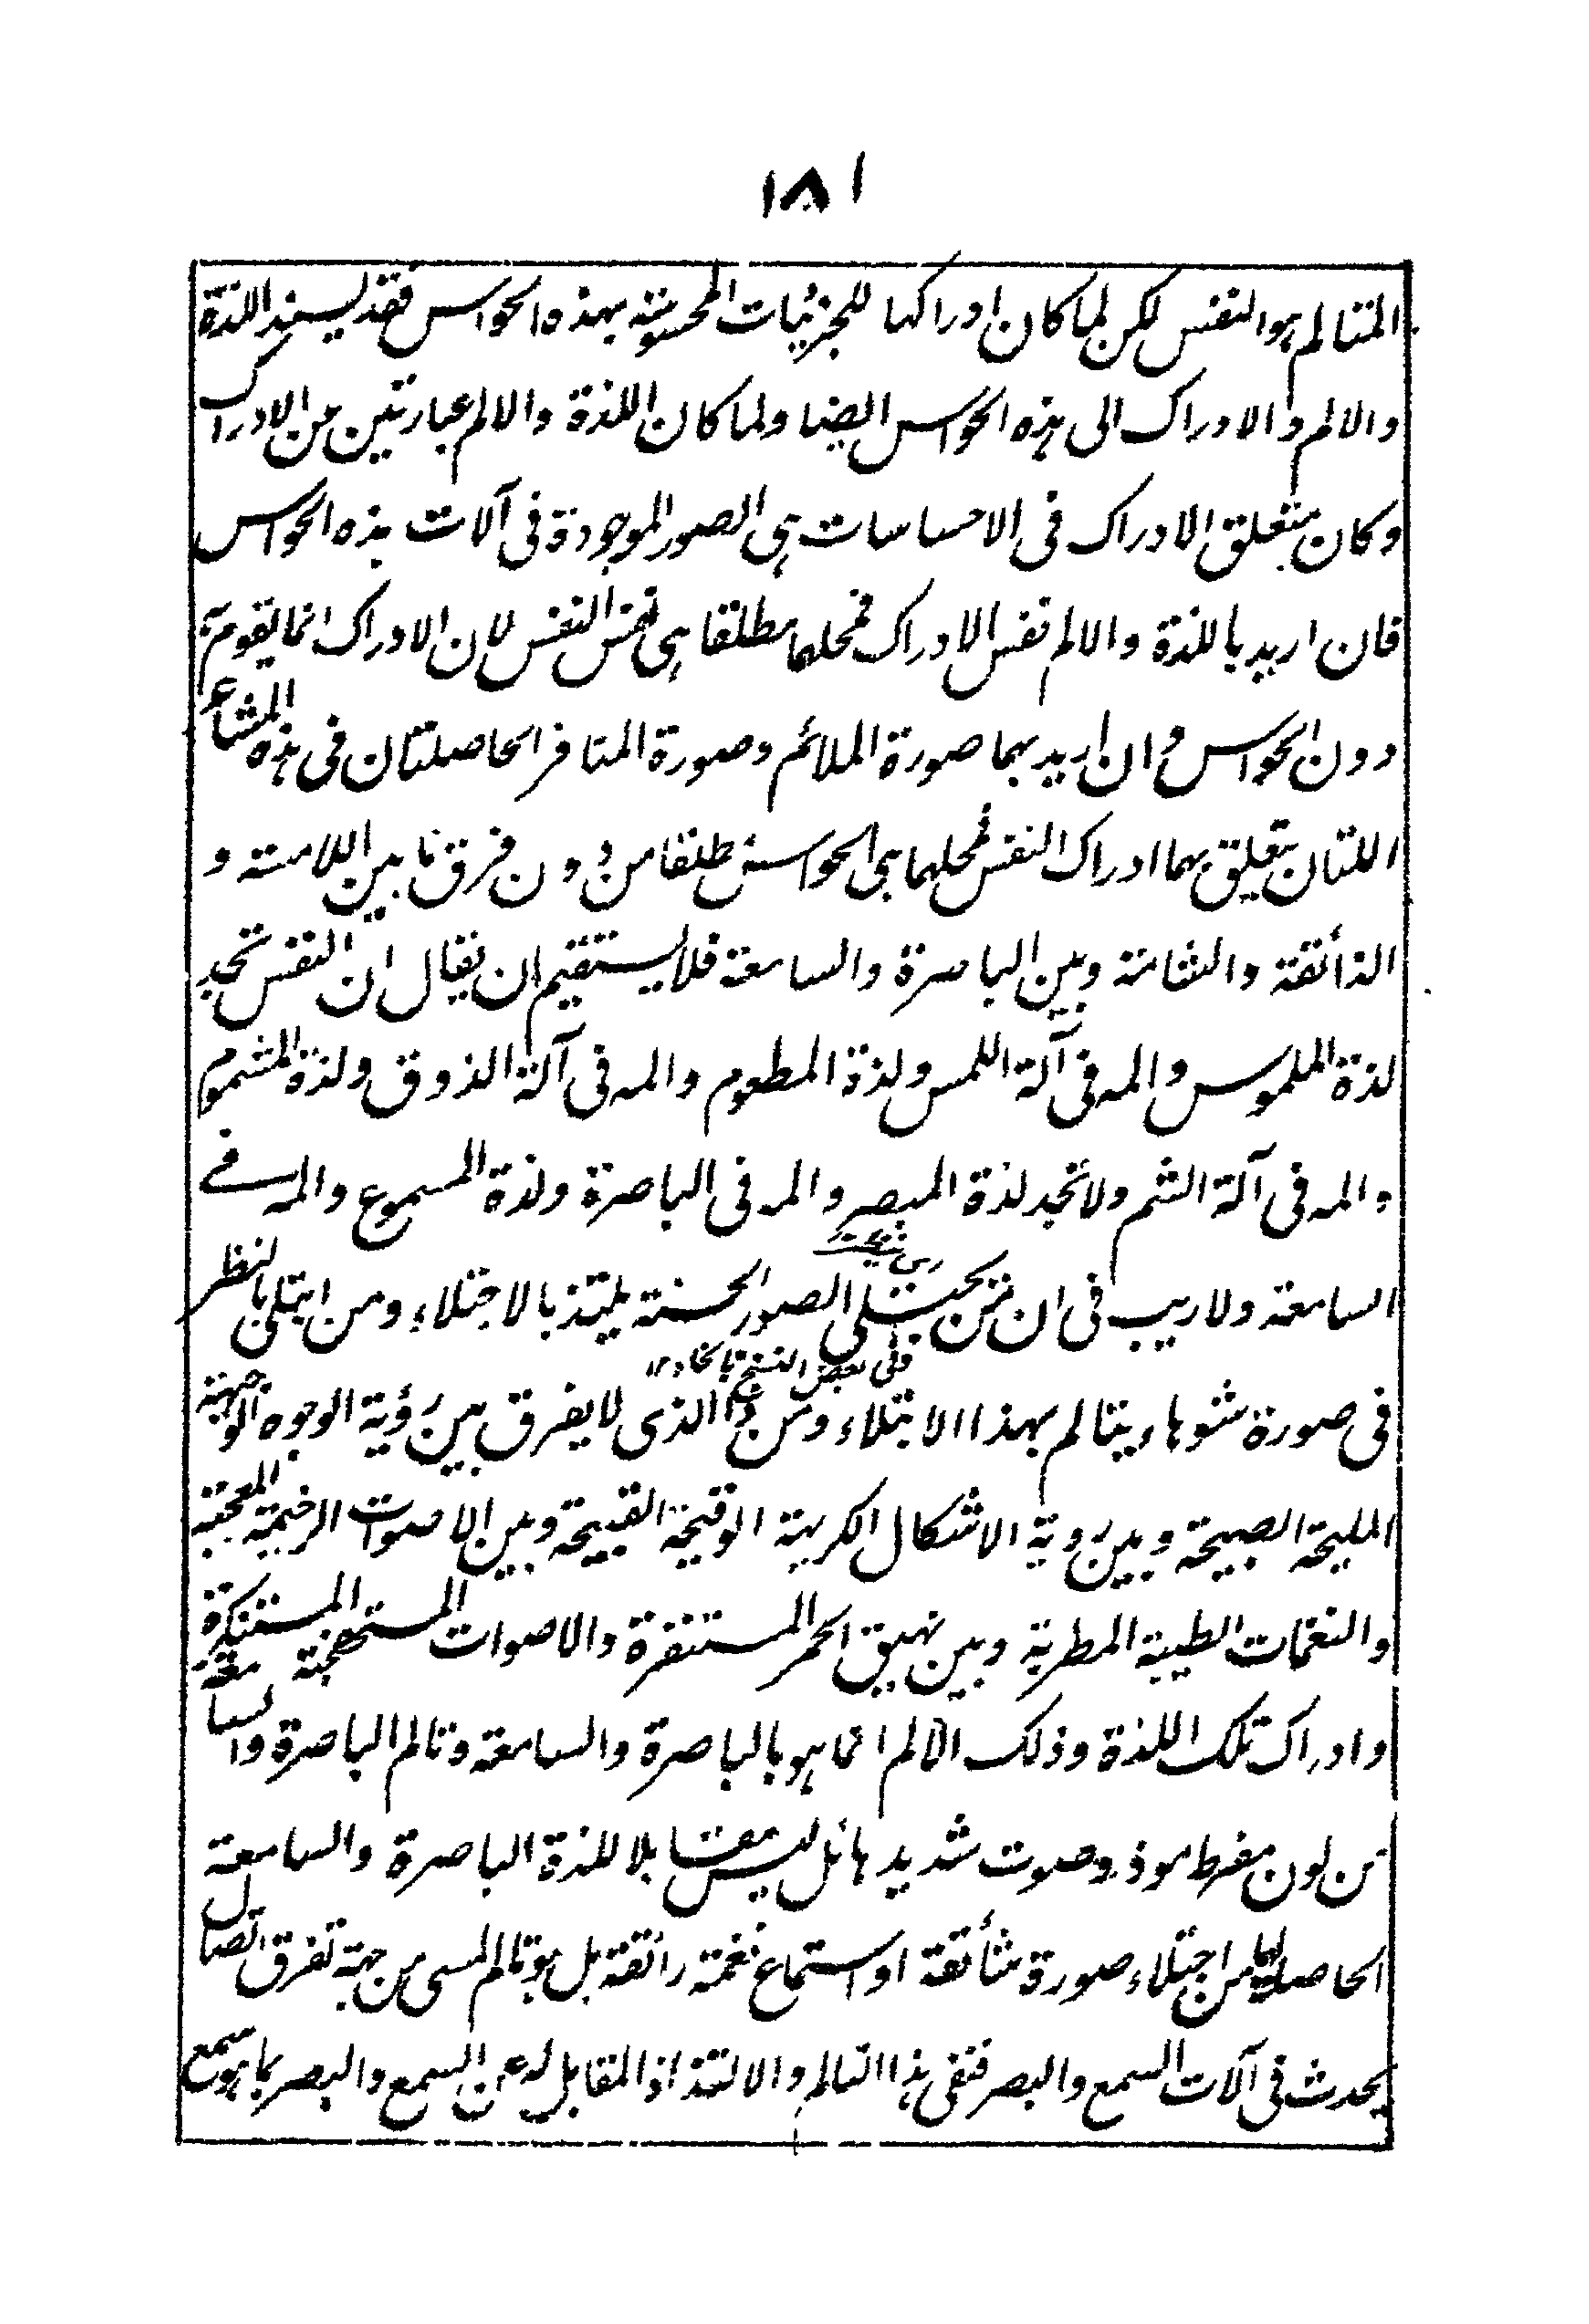 ١٨١
المتالم هو النفس لكن لما كان ادراكها للجزئيات المحسوسة بهذه الحواس فقد يسند اللذة
والالم والادراك الى هذه الحواس ايضا ولما كان اللذة والالم عبارتين من الادراك
وكان متعلق الادراك فى الاحساسات هى الصور الموجودة فى آلات هذه الحواس
فان اريد باللذة والالم نفس الادراك فمحلها مطلقا هى نفس النفس لان الادراك انما يقوم به
دون الحواس وان اريد بهما صورة الملائم وصورة المنافر الحاصلتان فى هذه المشاعر
اللتان يتعلق بهما ادراك النفس فمحلهما هى الحواس مطلقا من دون فرق ما بين اللامسة و
الذائقة والشامة وبين الباصرة والسامعة فلا يستقيم ان يقال ان النفس تجد
لذة الملموس والمه فى آلة اللمس ولذة المطعوم والمه فى آلة الذوق ولذة المشموم
والمه فى آلة الشم ولا تجد لذة المبصر والمه فى الباصرة ولذة المسموع والمه فے
السامعة ولا ريب فى ان من يجتلى الصور الحسنة يلتذ بالاجتلاء ومن ابتلى بالنظر
فى بعض النسخ
فى صورة شوهاء يتالم بهذا الابتلاء ومن ذا الذى لا يفرق بين رؤية الوجوه الوجيهة
المليحة الصبيحة وبين روية الاشكال الكريهة الوقيحة القبيحة وبين الاصوات الرخيمة المعجبة
والنغمات الطيبة المطربة وبين نهيق الحمر المستنفرة والاصوات المستهجنة المستنكرة
وادراك تلك اللذة وذلك الالم انما هو بالباصرة والسامعة وتالم الباصرة والسامعة
من لون مفرط موذ وصوت شديد هائل ليس مقابلا للذة الباصرة والسامعة
الحاصلة لهما من اجتلاء صورة شائقة او استماع نغمة رائقة بل هو تالم لمسى من جهة تفرق اتصال
يحدث فى آلات السمع والبصر فنفى هذا التالم والالتذاذ المقابل له عن السمع والبصر كما هو